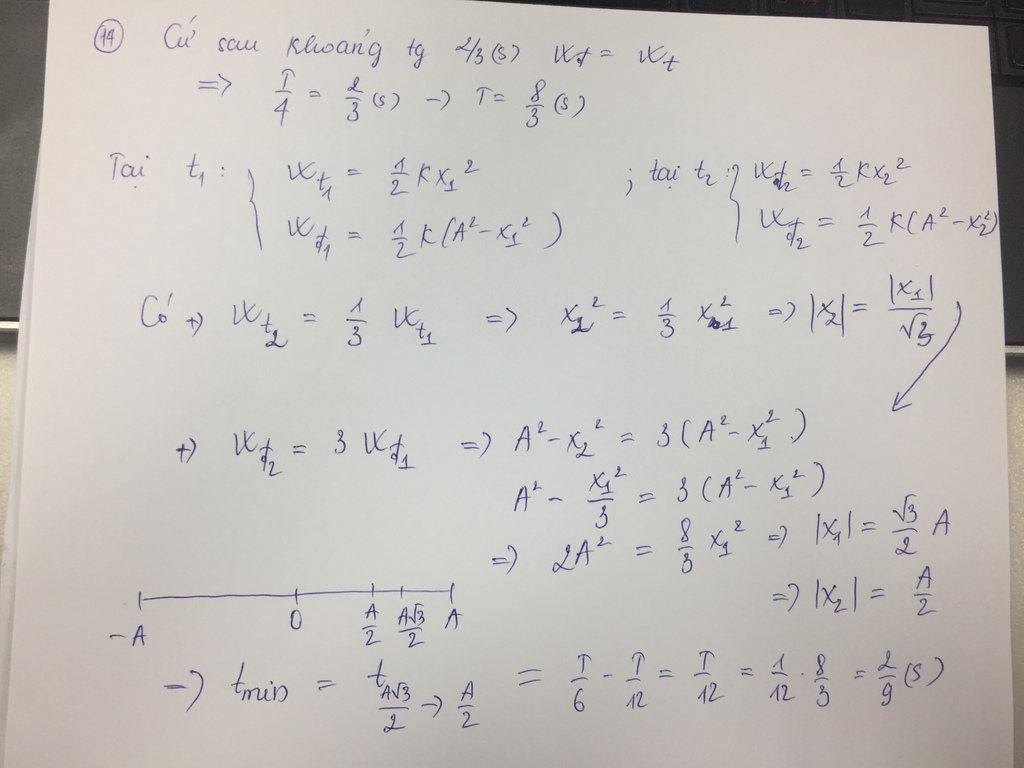 (14) Cứ sau khoảng tg 2/3 (s) Wđ = Wt
=> T/4 = 2/3 (s) → T = 8/3 (s)
Tại t₁ : { Wt₁ = 1/2 Kx₁² ; tại t₂ : { Wt₂ = 1/2 Kx₂²
Wđ₁ = 1/2 K(A² - x₁²) Wđ₂ = 1/2 K(A² - x₂²)
Có +) Wt₂ = 1/3 Wt₁ => x₂² = 1/3 x₁² => |x₂| = |x₁|/√3
+) Wđ₂ = 3 Wđ₁ => A² - x₂² = 3(A² - x₁²)
A² - x₁²/3 = 3(A² - x₁²)
=> 2A² = 8/3 x₁² => |x₁| = √3/2 A
=> |x₂| = A/2
-A O A/2 A√3/2 A
→ tmin = t A√3/2 → A/2 = T/6 - T/12 = T/12 = 1/12 . 8/3 = 2/9 (s)